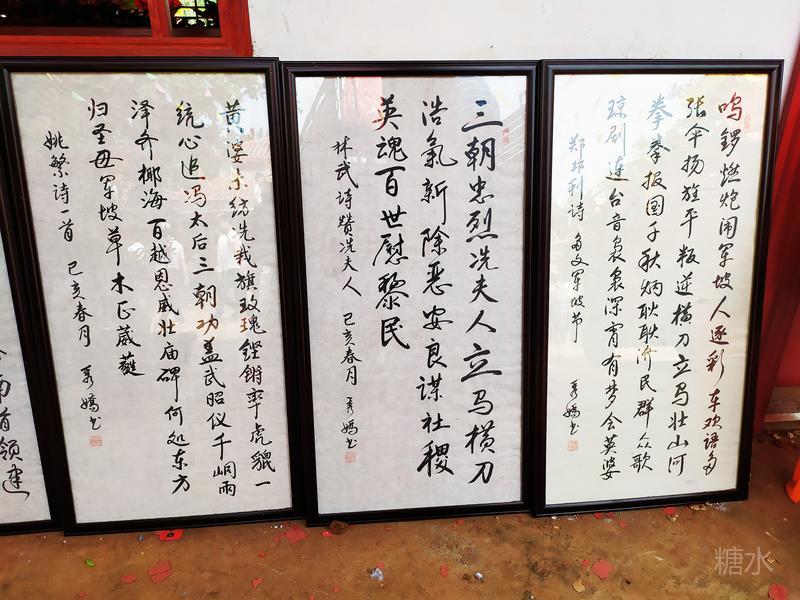 鸣锣燃炮闹军坡人逐彩车欢语多
张伞扬旌平叛逆横刀立马壮山河
拳拳报国千秋炳耿耿济民群众歌
琼剧连台音袅袅深宵有梦会英婆
郑邦利诗 多文军坡节 书
三朝忠烈冼夫人立马横刀
浩氣新除恶安良谋社稷
英魂百世慰黎民
林武诗赞冼夫人 己亥春月 书
黄婆未纺冼裁旗玫瑰铿锵率虎貔一
统心追冯太后三朝功盖武昭仪千峒雨
泽齐椰海百越恩威壮庙碑何处东方
归圣母军坡草木正葳蕤
姚繁诗一首 己亥春月 书
南首领建
糖水